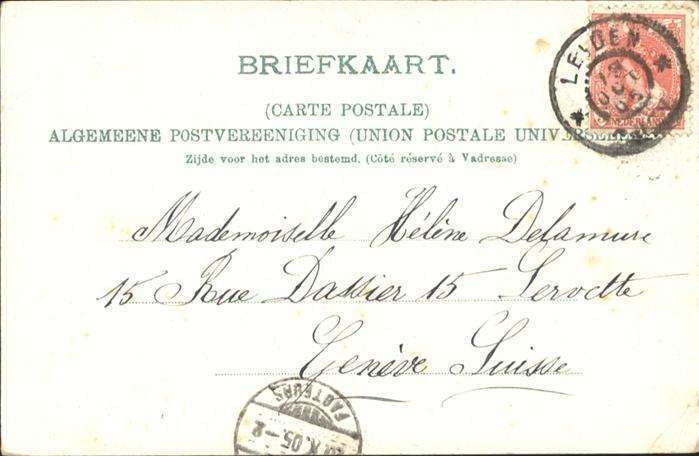 BRIEFKAART.
(CARTE POSTALE)
ALGEMEENE POSTVEREENIGING (UNION POSTALE UNIVERSELLE)
Zijde voor het adres bestemd. (Côté réservé à Vadresse)
LEIDEN
NEDERLAND
Mademoiselle Hélène Delamure
15 Rue Dassier 15 Servette
Genève Suisse
FACTEURS
X.05.-8